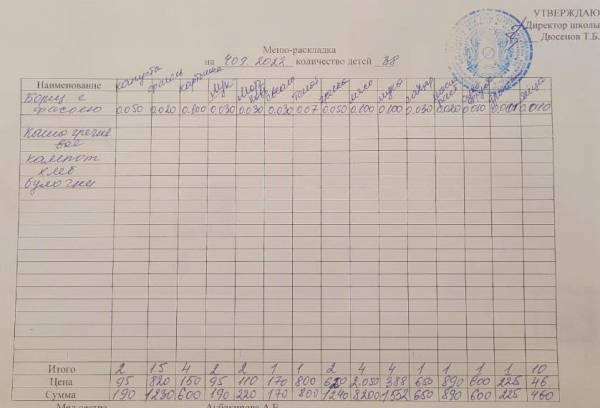 УТВЕРЖДАЮ
Директор школы
Дюсенов Т.Б.
Меню-раскладка
на 409 2022 количество детей 38
Наименование капуста фасоль картошка лук свекла томат мясо сахар яйца
Борщ с
фасолью 0.050 0.020 0.100 0.030 0.030 0.030 0.07 0.050 0.100 0.100 0.030 0.020 0.010 0.010 0.001 0.010
Каша гречне
вой
компот
хлеб
булочки
Итого 2 1.5 4 2 2 1 1 2 4 4 1 1 1 1 1 10
Цена 95 820 150 95 110 170 800 620 2.050 388 650 890 600 225 46
Сумма 190 1230 600 190 220 170 800 1240 8200 1552 650 890 600 225 460
Мед.сестра